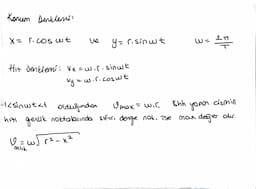 Konum Denklemi:
x = r.cos wt ve y = r.sin wt w = 2π/T
Hız denklemi: Vx = w.r.sin wt
Vy = w.r.cos wt
-1<sin wt<1 olduğundan Vmax = w.r. BHH yapan cismin
hızı gerilme noktalarında sıfır, denge nok. ise max değer alır.
V = w√r²-x²